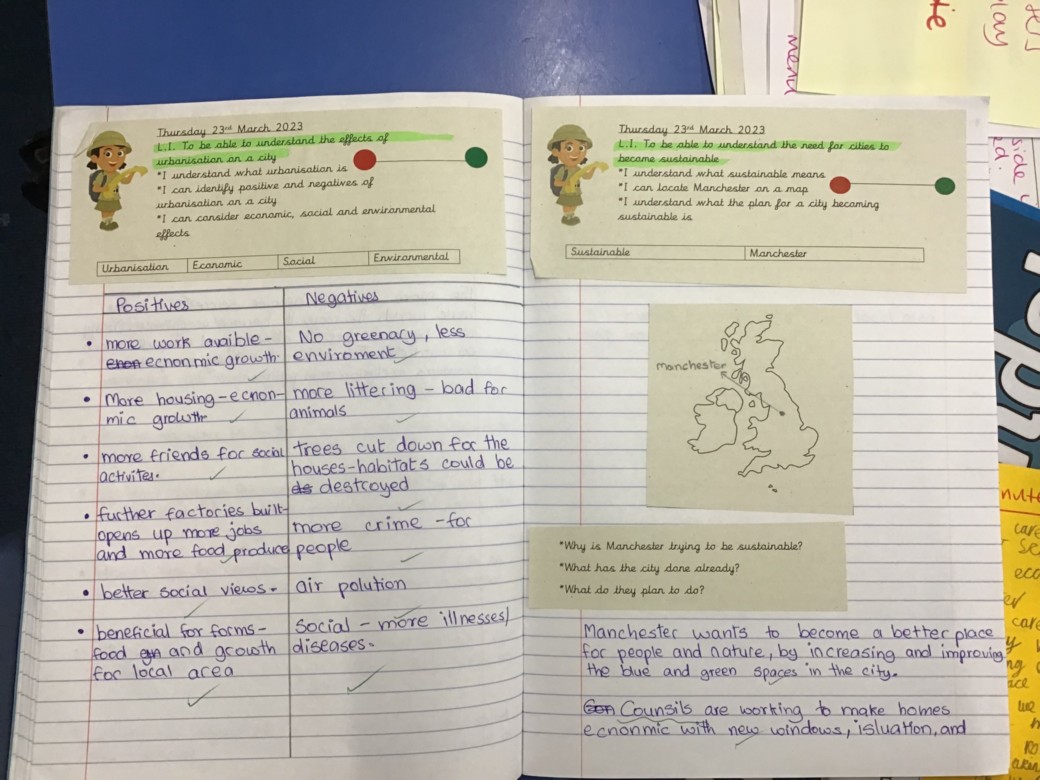 Thursday 23rd March 2023
L.I. To be able to understand the effects of
urbanisation on a city
*I understand what urbanisation is
*I can identify positive and negatives of
urbanisation on a city
*I can consider economic, social and environmental
effects
Urbanisation Economic Social Environmental
Positives
• more work avaible -
ecnonmic growth
• More housing - ecnon-
mic growth
• more friends for social
activites.
• further factories built-
opens up more jobs
and more food produce
• better social views.
• beneficial for forms-
food and growth
for local area
Negatives
No greenacy, less
enviroment
more littering - bad for
animals
trees cut down for the
houses - habitats could be
destroyed
more crime - for
people
air polution
social - more illnesses/
diseases.
Thursday 23rd March 2023
L.I. To be able to understand the need for cities to
become sustainable
*I understand what sustainable means
*I can locate Manchester on a map
*I understand what the plan for a city becoming
sustainable is
Sustainable Manchester
manchester
*Why is Manchester trying to be sustainable?
*What has the city done already?
*What do they plan to do?
Manchester wants to become a better place
for people and nature, by increasing and improving
the blue and green spaces in the city.
Counsils are working to make homes
ecnonmic with new windows, isluation, and
play
menu
side